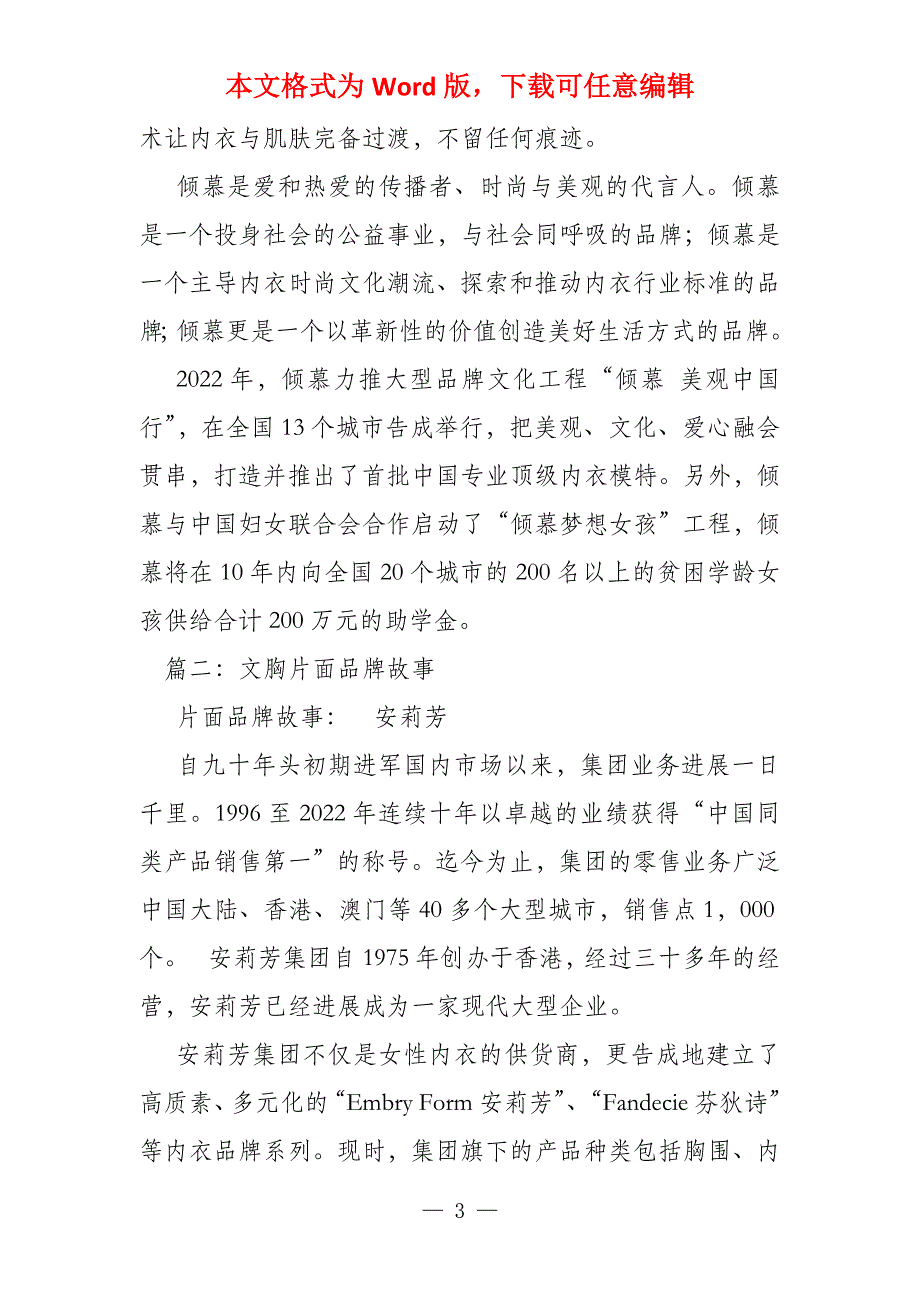 本文格式为 Word 版，下载可任意编辑
术让内衣与肌肤完备过渡，不留任何痕迹。
倾慕是爱和热爱的传播者、时尚与美观的代言人。倾慕
是一个投身社会的公益事业，与社会同呼吸的品牌；倾慕是
一个主导内衣时尚文化潮流、探索和推动内衣行业标准的品
牌；倾慕更是一个以革新性的价值创造美好生活方式的品牌。
2022 年，倾慕力推大型品牌文化工程“倾慕 美观中国
行”，在全国 13 个城市告成举行，把美观、文化、爱心融会
贯串，打造并推出了首批中国专业顶级内衣模特。另外，倾
慕与中国妇女联合会合作启动了“倾慕梦想女孩”工程，倾
慕将在 10 年内向全国 20 个城市的 200 名以上的贫困学龄女
孩供给合计 200 万元的助学金。
篇二：文胸片面品牌故事
片面品牌故事： 安莉芳
自九十年头初期进军国内市场以来，集团业务进展一日
千里。1996 至 2022 年连续十年以卓越的业绩获得“中国同
类产品销售第一”的称号。迄今为止，集团的零售业务广泛
中国大陆、香港、澳门等 40 多个大型城市，销售点 1，000
个。 安莉芳集团自 1975 年创办于香港，经过三十多年的经
营，安莉芳已经进展成为一家现代大型企业。
安莉芳集团不仅是女性内衣的供货商，更告成地建立了
高质素、多元化的“Embry Form 安莉芳”、“Fandecie 芬狄诗”
等内衣品牌系列。现时，集团旗下的产品种类包括胸围、内
— 3 —